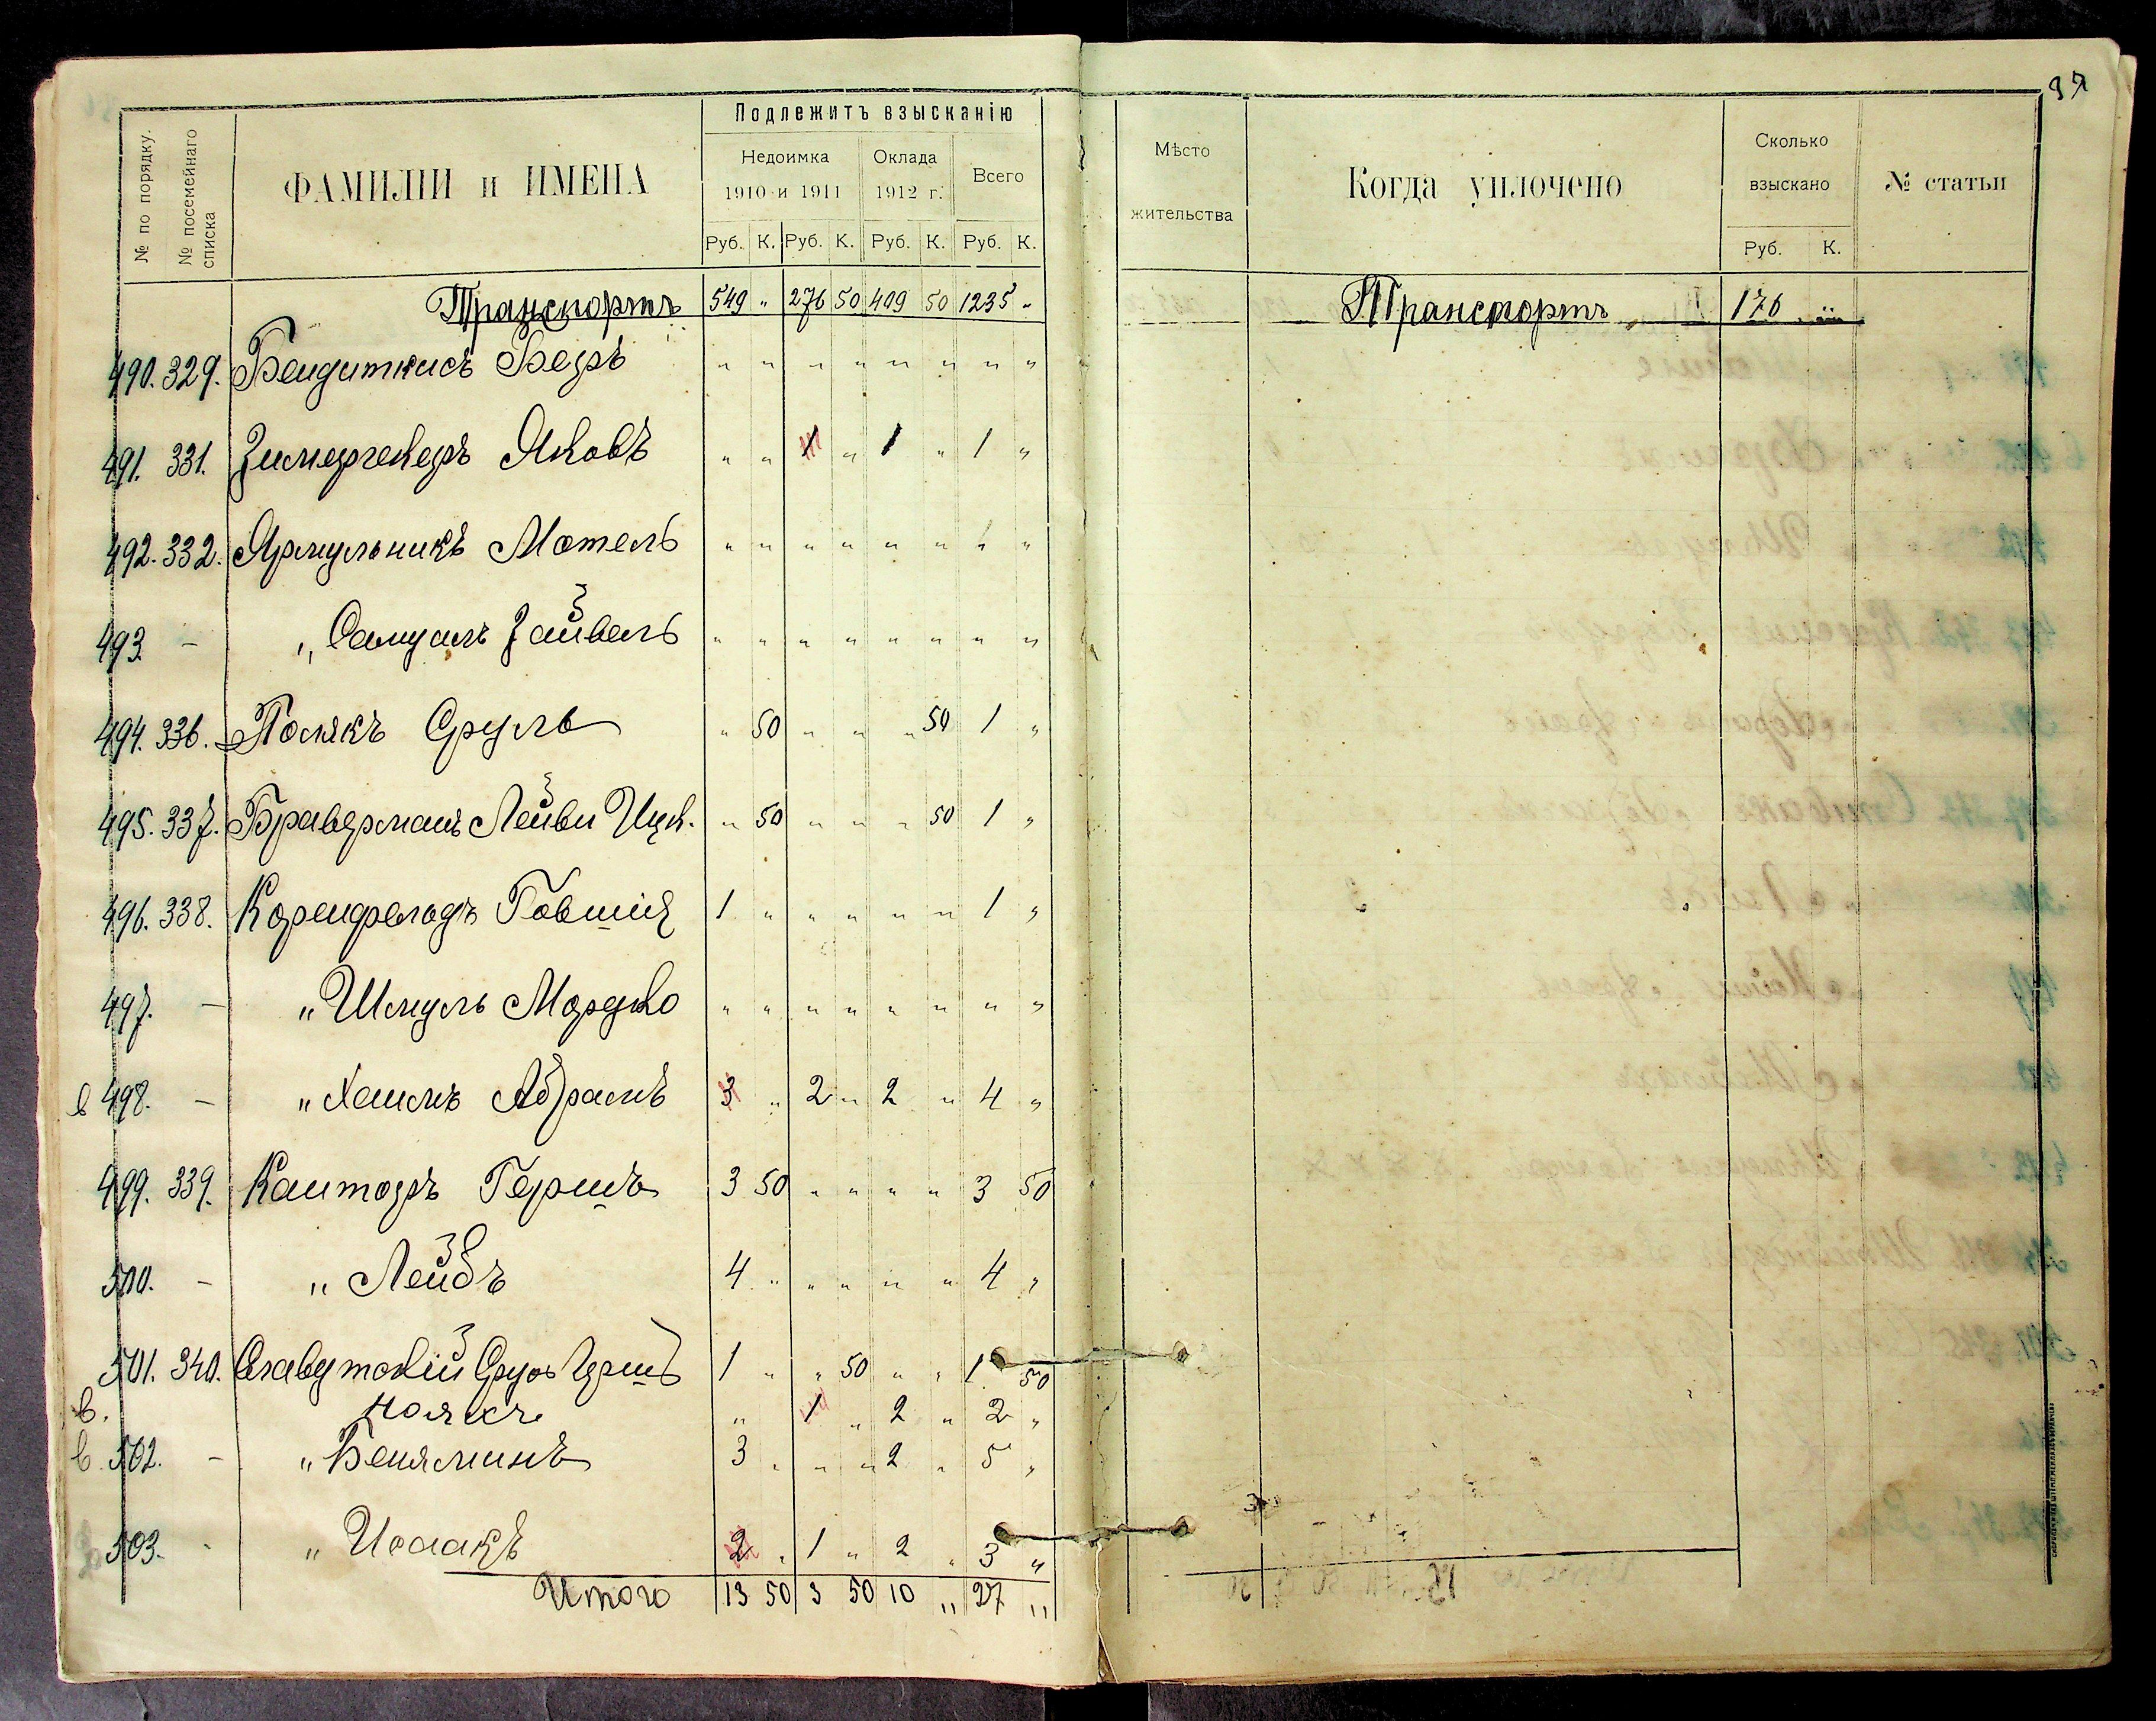 97
№ по порядку.
№ посемейнаго списка
ФАМИЛІИ и ИМЕНА
Подлежитъ взысканію
Недоимка 1910 и 1911
Оклада 1912 г.
Всего
Руб. К. Руб. К. Руб. К. Руб. К.
Мѣсто жительства
Когда уплочено
Сколько взыскано
Руб. К.
№ статьи
Транспортъ 549 „ 276 50 409 50 1235 „
Транспортъ 176 „
490. 329. Бендиткисъ Беръ „ „ „ „ „ „ „ „
491. 331. Зимерчекеръ Яковъ „ „ 1 „ 1 „ 1 „
492. 332. Ярмульникъ Мотель „ „ „ „ „ „ „ „
493 - „ Самуилъ Зайвель „ „ „ „ „ „ „ „
494. 336. Полякъ Сруль „ 50 „ „ „ 50 1 „
495. 337. Браверманъ Лейви Ицк. „ 50 „ „ „ 50 1 „
496. 338. Коренфельдъ Говшія 1 „ „ „ „ „ 1 „
497. - „ Шмуль Мордко „ „ „ „ „ „ „ „
в 498. - „ Хаимъ Абрамъ 3 „ 2 „ 2 „ 4 „
499. 339. Канторъ Гершъ 3 50 „ „ „ „ 3 50
500. - „ Лейбъ 4 „ „ „ „ „ 4 „
501. 340. Славутскій Сруль Гершъ 1 „ „ 50 „ „ 1 50
в. „ 1 „ 2 „ 2 „
в. 502. - „ Беняминъ 3 „ „ „ 2 „ 5 „
503. - „ Исаакъ 2 „ 1 „ 2 „ 3 „
Итого 13 50 3 50 10 „ 27 „